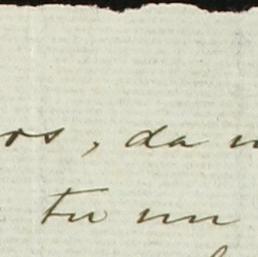 os, da
tu un